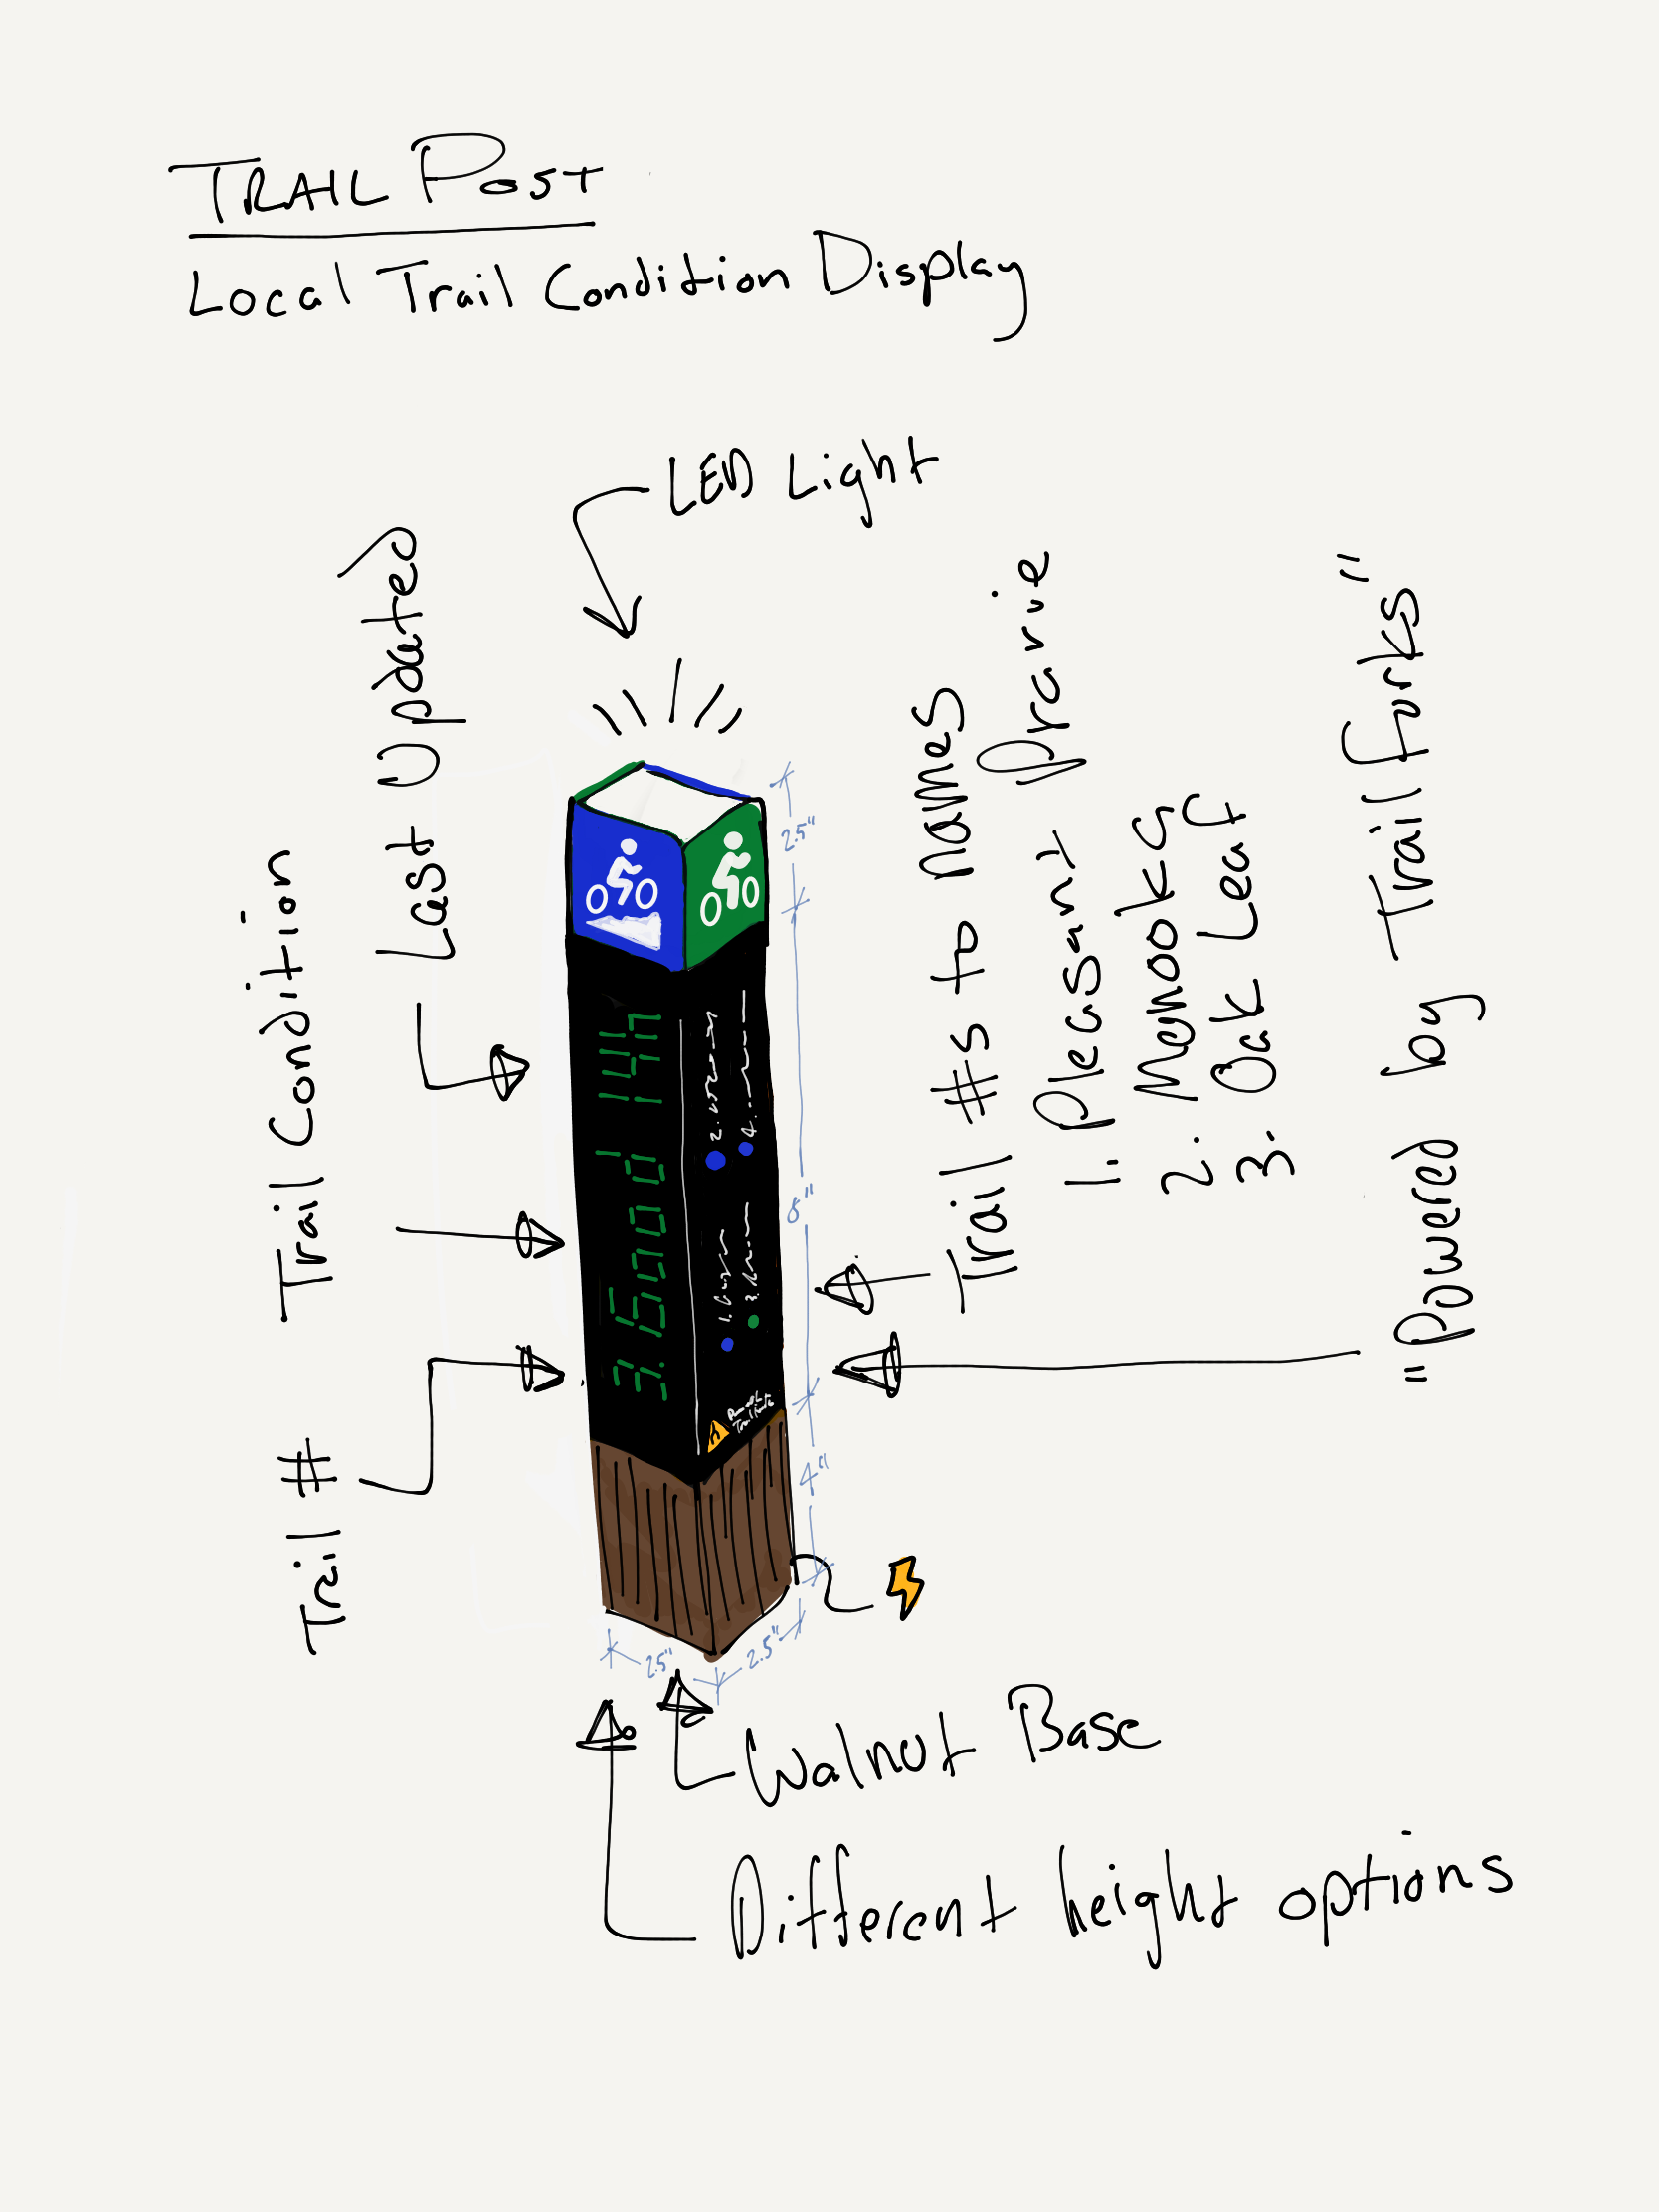 TRAIL Post
Local Trail Condition Display
LED Light
Last Updated
Trail Condition
Trail #
3. Good 14h
2.
4.
1.
3.
Trail #s to names
1. Pleasant Prarie
2. Menooka
3. Oak Leaf
"Powered by Trail Forks"
2.5"
8"
4"
2.5"
2.5"
Walnut Base
Different height options